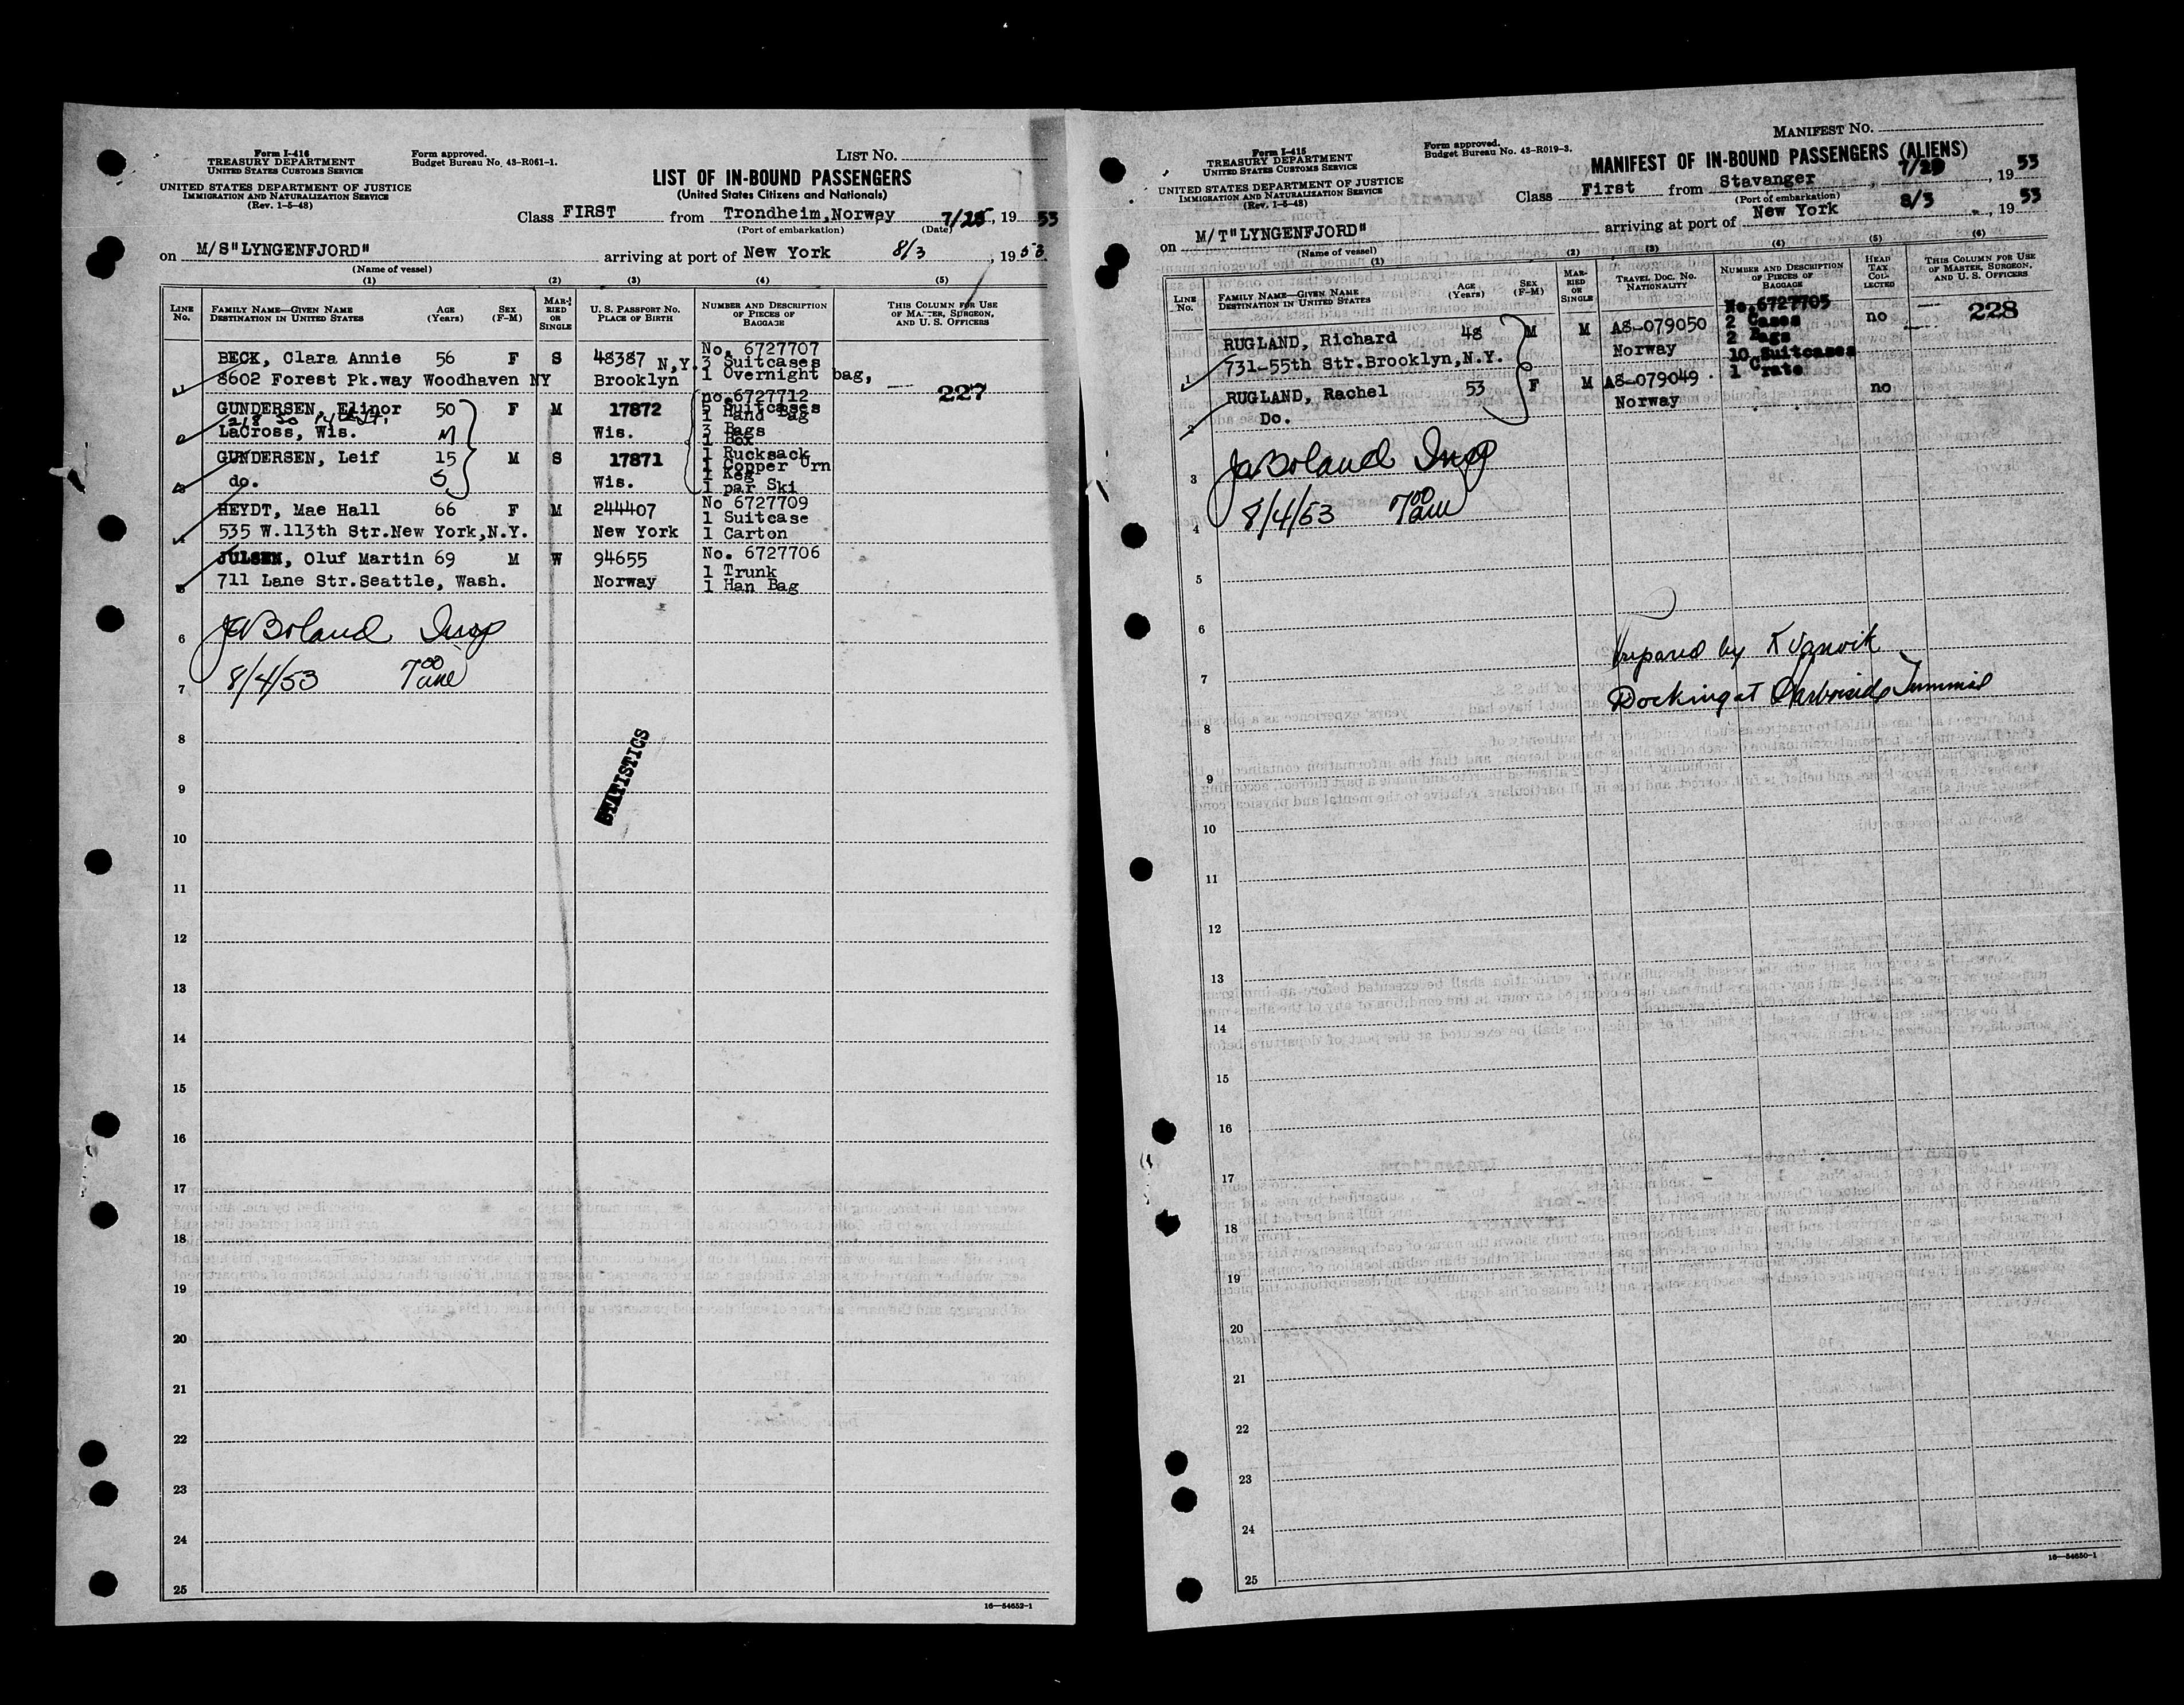 Form I-416
TREASURY DEPARTMENT
UNITED STATES CUSTOMS SERVICE
UNITED STATES DEPARTMENT OF JUSTICE
IMMIGRATION AND NATURALIZATION SERVICE
(Rev. 1-5-48)
Form approved.
Budget Bureau No. 43-R061-1.
LIST NO.
LIST OF IN-BOUND PASSENGERS
(United States Citizens and Nationals)
Class FIRST from Trondheim, Norway 7/25, 1953
(Port of embarkation) (Date)
on M/S"LYNGENFJORD" arriving at port of New York 8/3, 1953
(Name of vessel)
(1) (2) (3) (4) (5)
LINE No.
FAMILY NAME—GIVEN NAME
DESTINATION IN UNITED STATES
AGE (Years)
SEX (F-M)
MARRIED OR SINGLE
U. S. PASSPORT NO.
PLACE OF BIRTH
NUMBER AND DESCRIPTION OF PIECES OF BAGGAGE
THIS COLUMN FOR USE OF MASTER, SURGEON, AND U. S. OFFICERS
1 BECK, Clara Annie 56 F S 48387 No. 6727707
8602 Forest Pk.way Woodhaven NY Brooklyn N.Y. 3 Suitcases
1 Overnight bag,
227
2 GUNDERSEN, Elinor 50 F M 17872 no.6727712
5 Suitcases
1 Hand Bag
LaCross, Wis. M Wis. 3 Bags
1 Box
3 GUNDERSEN, Leif 15 M S 17871 1 Rucksack
1 Copper Urn
do. S Wis. 1 Keg
1 par Ski
4 HEYDT, Mae Hall 66 F M 244407 No 6727709
1 Suitcase
535 W.113th Str.New York,N.Y. New York 1 Carton
5 JULSEN, Oluf Martin 69 M W 94655 No. 6727706
1 Trunk
711 Lane Str.Seattle, Wash. Norway 1 Han Bag
6 Boland Insp
7 8/4/53 7 00 am
STATISTICS
8
9
10
11
12
13
14
15
16
17
18
19
20
21
22
23
24
25
16—54652-1
Form I-415
TREASURY DEPARTMENT
UNITED STATES CUSTOMS SERVICE
UNITED STATES DEPARTMENT OF JUSTICE
IMMIGRATION AND NATURALIZATION SERVICE
(Rev. 1-5-48)
Form approved.
Budget Bureau No. 43-R019-3.
MANIFEST NO.
MANIFEST OF IN-BOUND PASSENGERS (ALIENS)
Class First from Stavanger, 7/29, 1953
(Port of embarkation)
on M/T"LYNGENFJORD" arriving at port of New York 8/3, 1953
(Name of vessel)
(1) (2) (3) (4) (5) (6)
LINE No.
FAMILY NAME—GIVEN NAME
DESTINATION IN UNITED STATES
AGE (Years)
SEX (F-M)
MARRIED OR SINGLE
TRAVEL DOC. NO.
NATIONALITY
NUMBER AND DESCRIPTION OF PIECES OF BAGGAGE
HEAD TAX COLLECTED
THIS COLUMN FOR USE OF MASTER, SURGEON, AND U. S. OFFICERS
1 RUGLAND, Richard 48 M M A8-079050 No.6727705 no 228
2 Cases
731-55th Str.Brooklyn,N.Y. Norway 2 Bags
10 Suitcases
2 RUGLAND, Rachel 53 F M A8-079049 1 Crate no
Do. Norway
3 Boland Insp
4 8/4/53 7 00 am
5
6
Prepared by
7
Docking at Harborside Terminal
8
9
10
11
12
13
14
15
16
17
18
19
20
21
22
23
24
25
16—54650-1